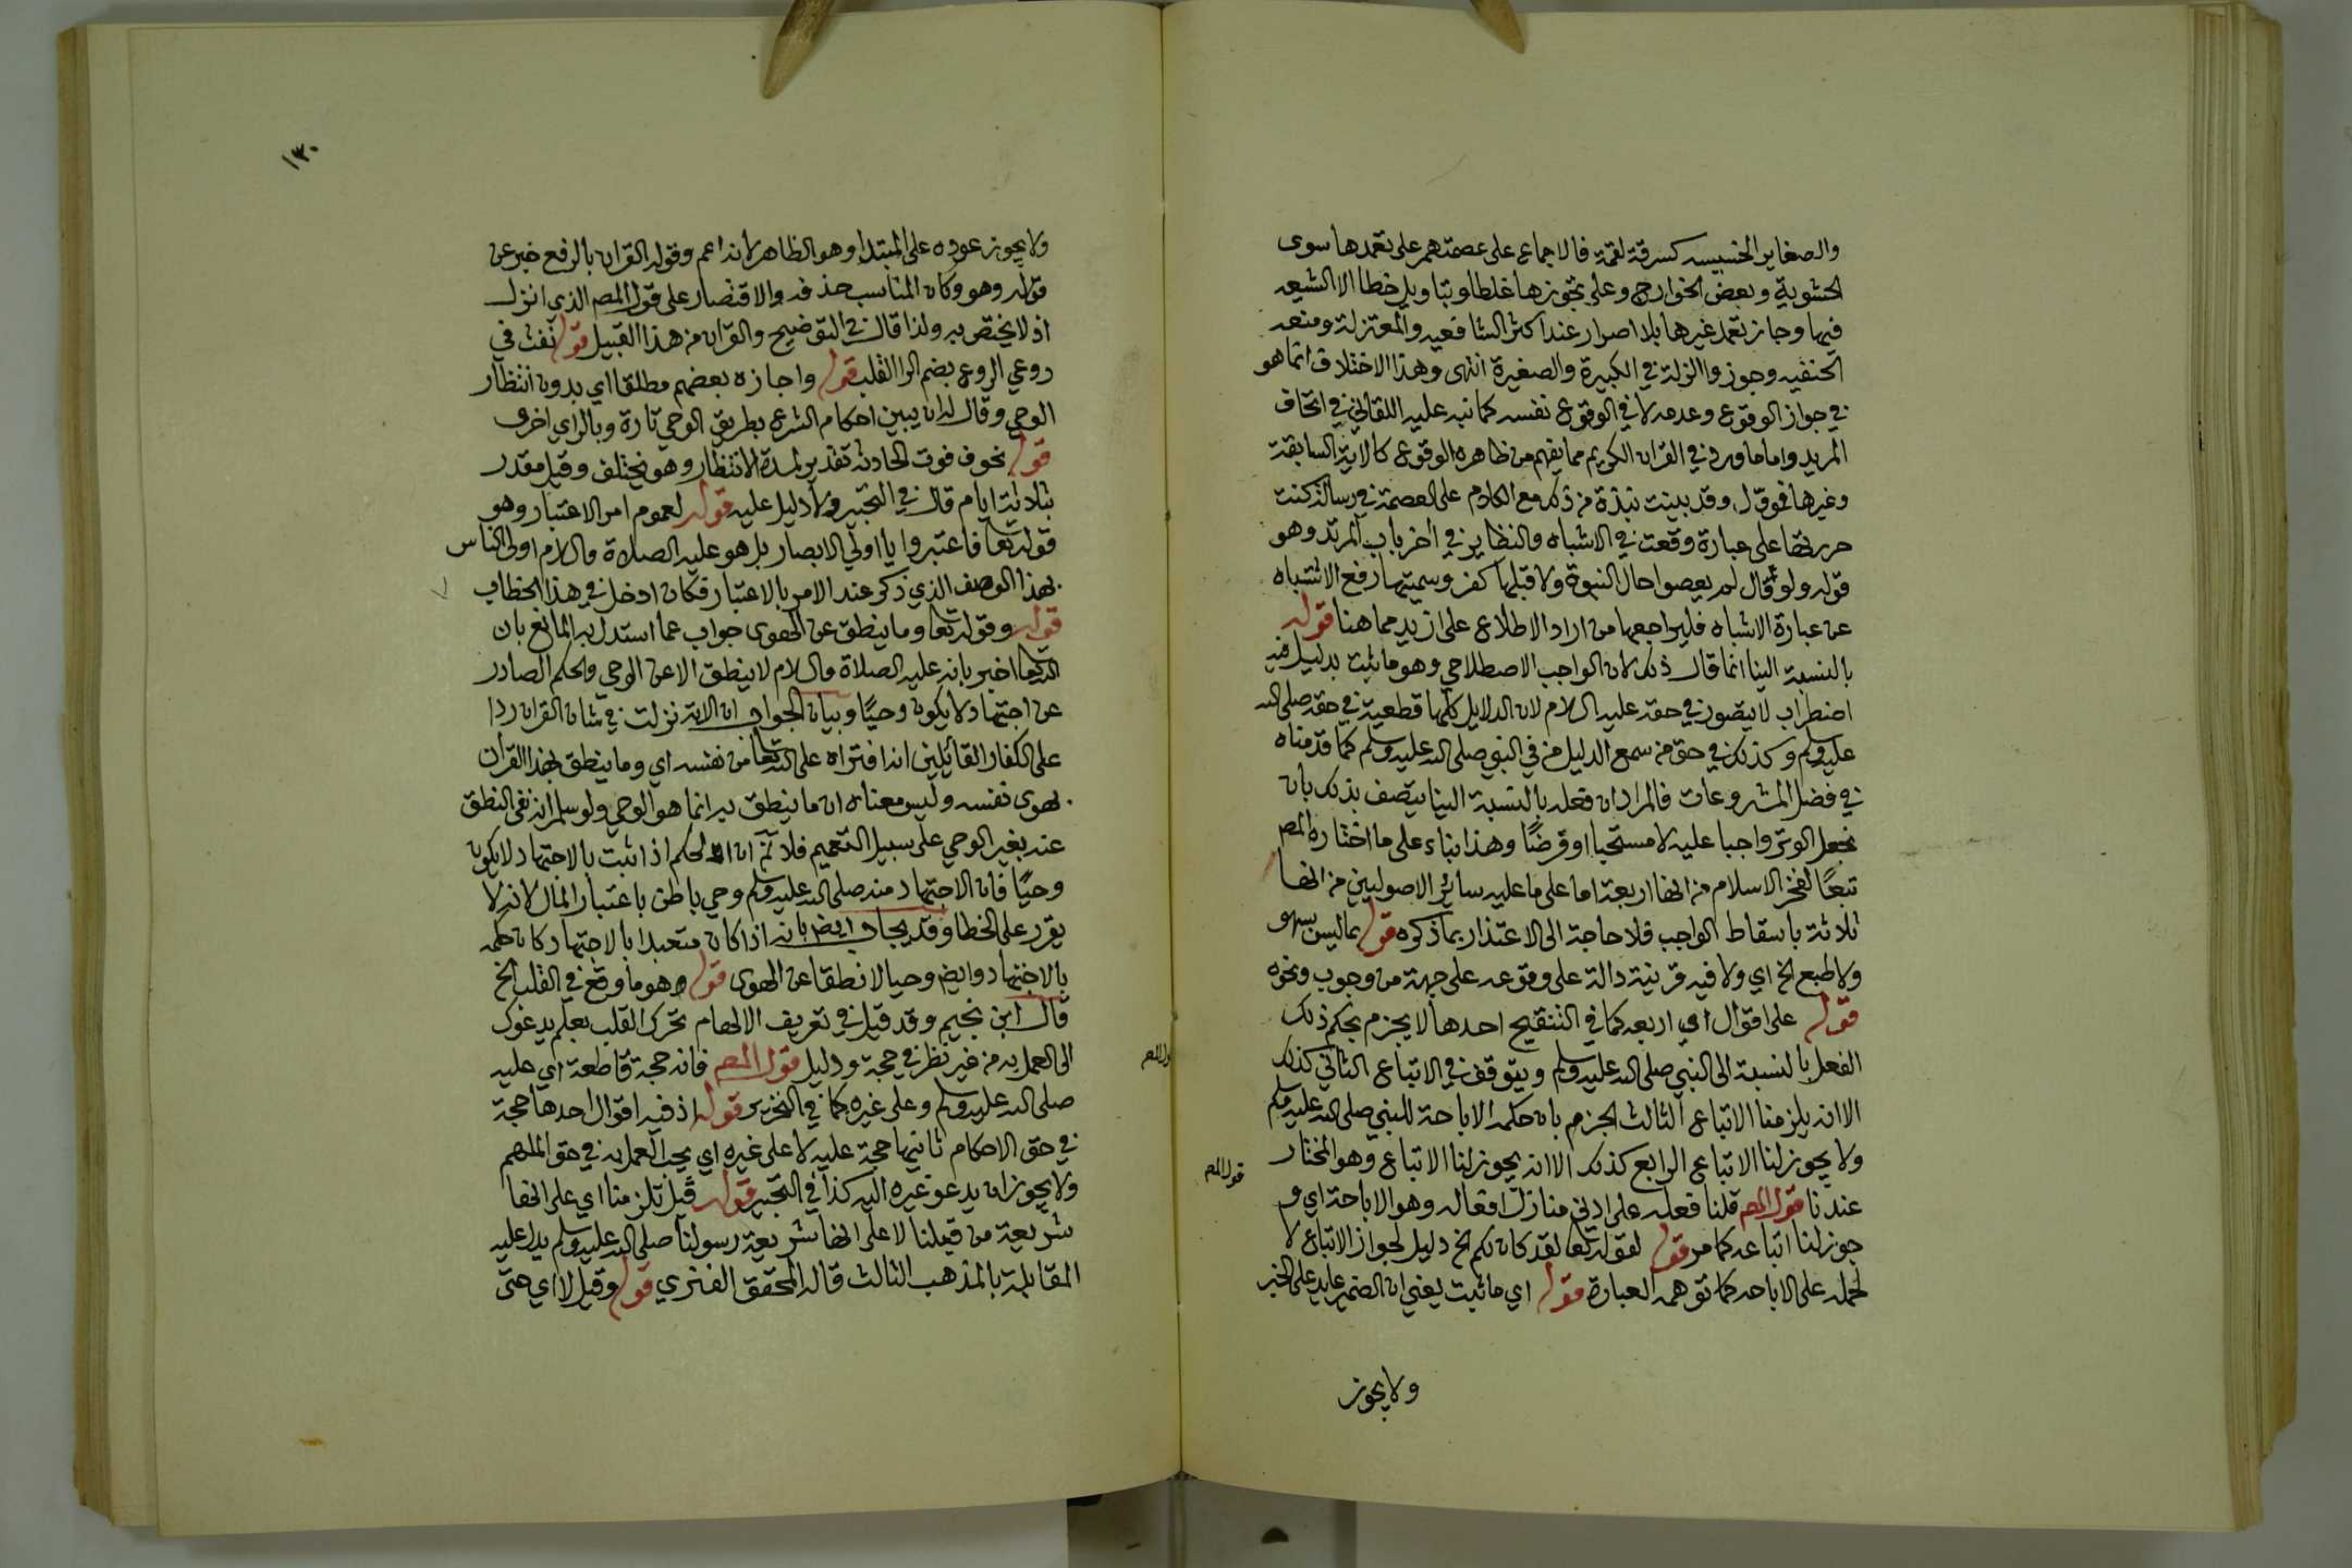 والصغاير الخسيسه كسرقة لقمة فالاجماع على عصمتهم على تعمدها سوى
الحشوية وبعض الخوارج وعلى تجوزها غلطا وبتاويل خطا الا الشيعه
فيها وجاز تعمد غيرها بلا اصرار عند اكثر الشافعيه والمعتزلة ومنعه
الحنفيه وجوزوا الزلة في الكبيرة والصغيرة انتهى وهذا الاختلاف انما هو
في جواز الوقوع وعدمه لا في الوقوع نفسه كما نبه عليه اللقاني في اتحاف
المريد واما ما ورد في القران الكريم مما يفهم من ظاهره الوقوع كالاية السابقة
وغيرها فموول وقد بينت نبذة من ذلك مع الكلام على العصمة في رسالة كنت
حررتها على عبارة وقعت في الاشباه والنظاير في اخر باب المرتد وهو
قوله ولو قال لم يعصوا حال النبوة ولا قبلها كفر وسميتها رفع الاشتباه
عن عبارة الاشباه فليراجعها من اراد الاطلاع على ازيد مما هنا قوله
بالنسبة الينا انما قال ذلك لان الواجب الاصطلاحي وهو ما ثبت بدليل فيه
اضطراب لا يتصور في حقه عليه السلام لان الدلايل كلها قطعية في حقه صلى الله
عليه وسلم وكذلك في حق من سمع الدليل من في النبي صلى الله عليه وسلم كما قدمناه
في فصل المشروعات فالمراد ان فعله بالنسبة الينا يتصف بذلك بان
نجعل الوتر واجبا عليه لا مستحبا او فرضًا وهذا بناء على ما اختاره المص
تبعًا لفخر الاسلام من انها اربعة اما على ما عليه سائر الاصوليين من انها
ثلاثة باسقاط الواجب فلا حاجة الى الاعتذار بما ذكره قوله مما ليس بسهو
ولا طبع الخ اي ولا فيه قرينة دالة على وقوعه على جهة من وجوب ونحوه
قوله على اقوال اي اربعه كما في التنقيح احدها لا يجزم بحكم ذلك
الفعل بالنسبة الى النبي صلى الله عليه وسلم ويتوقف في الاتباع الثاني كذلك
الا انه يلزمنا الاتباع الثالث الجزم بان حكمه الاباحة للنبي صلى الله عليه وسلم
ولا يجوز لنا الاتباع الرابع كذلك الا انه يجوز لنا الاتباع وهو المختار
عندنا قول المص قلنا فعله على ادنى منازل افعاله وهو الاباحة اي و
جوز لنا اتباعه كما مر قوله لقوله تعا لقد كان لكم الخ دليل لجواز الاتباع لا
لحمله على الاباحه كما توهمه العبارة قوله اي ما ثبت يعني ان الضمير عايد على الخبر
قول المص
ولا يجوز
١٣٠
ولا يجوز عوده على المبتدا وهو الظاهر لانه اعم وقوله القران بالرفع خبر عن
قوله وهو وكان المناسب حذفه والاقتصار على قول المص الذي انزل
اذ لا يختص به ولذا قال في التوضيح والقران من هذا القبيل قوله نفث في
روعي الروع بضم الرا القلب قوله واجازه بعضهم مطلقا اي بدون انتظار
الوحي وقال له ان يبين احكام الشرع بطريق الوحي تارة وبالراي اخرى
قوله بخوف فوت الحادثه تقدير لمدة الانتظار وهو يختلف وقيل مقدر
بثلاثة ايام قال في التحرير ولا دليل عليه قوله لعموم امر الاعتبار وهو
قوله تعا فاعتبروا يا اولي الابصار بل هو عليه الصلاة والسلام اولى الناس
بهذا الوصف الذي ذكر عند الامر بالاعتبار فكان ادخل في هذا الخطاب
قوله وقوله تعا وما ينطق عن الهوى جواب عما استدل به المانع بان
الله تعا اخبر بانه عليه الصلاة والسلام لا ينطق الا عن الوحي والحكم الصادر
عن اجتهاد لا يكون وحيًا وبيان الجواب ان الاية نزلت في شان القران ردا
على الكفار القائلين انه افتراه على الله تعا من نفسه اي وما ينطق بهذا القرآن
بهوى نفسه وليس معناه ان ما ينطق به انما هو الوحي ولو سلم انه نفى النطق
عنه بغير الوحي على سبيل التعميم فلا نم ان الحكم اذا ثبت بالاجتهاد لا يكون
وحيًا فان الاجتهاد منه صلى الله عليه وسلم وحي باطن باعتبار المال لانه لا
يقرر على الخطا وقد يجاب ايض بانه اذا كان متعبدا بالاجتهاد كان حكمه
بالاجتهاد وايض وحيا لا نطقا عن الهوى قوله وهو ما وقع في القلب الخ
قال ابن نجيم وقد قيل في تعريف الالهام تحرك القلب بعلم يدعوك
الى العمل به من غير نظر في حجة ودليل قول المص فانه حجة قاطعة اي عليه
صلى الله عليه وسلم وعلى غيره كما في التحرير قوله اذ فيه اقوال احدها حجة
في حق الاحكام ثانيها حجة عليه لا على غيره اي يجب العمل به في حق الملهم
ولا يجوز ان يدعو غيره اليه كذا في التحبير قوله قيل تلزمنا اي على انها
شريعة من قبلنا لا على انها شريعة رسولنا صلى الله عليه وسلم يدل عليه
المقابلة بالمذهب الثالث قاله المحقق الفنري قوله وقيل لا اي حتى